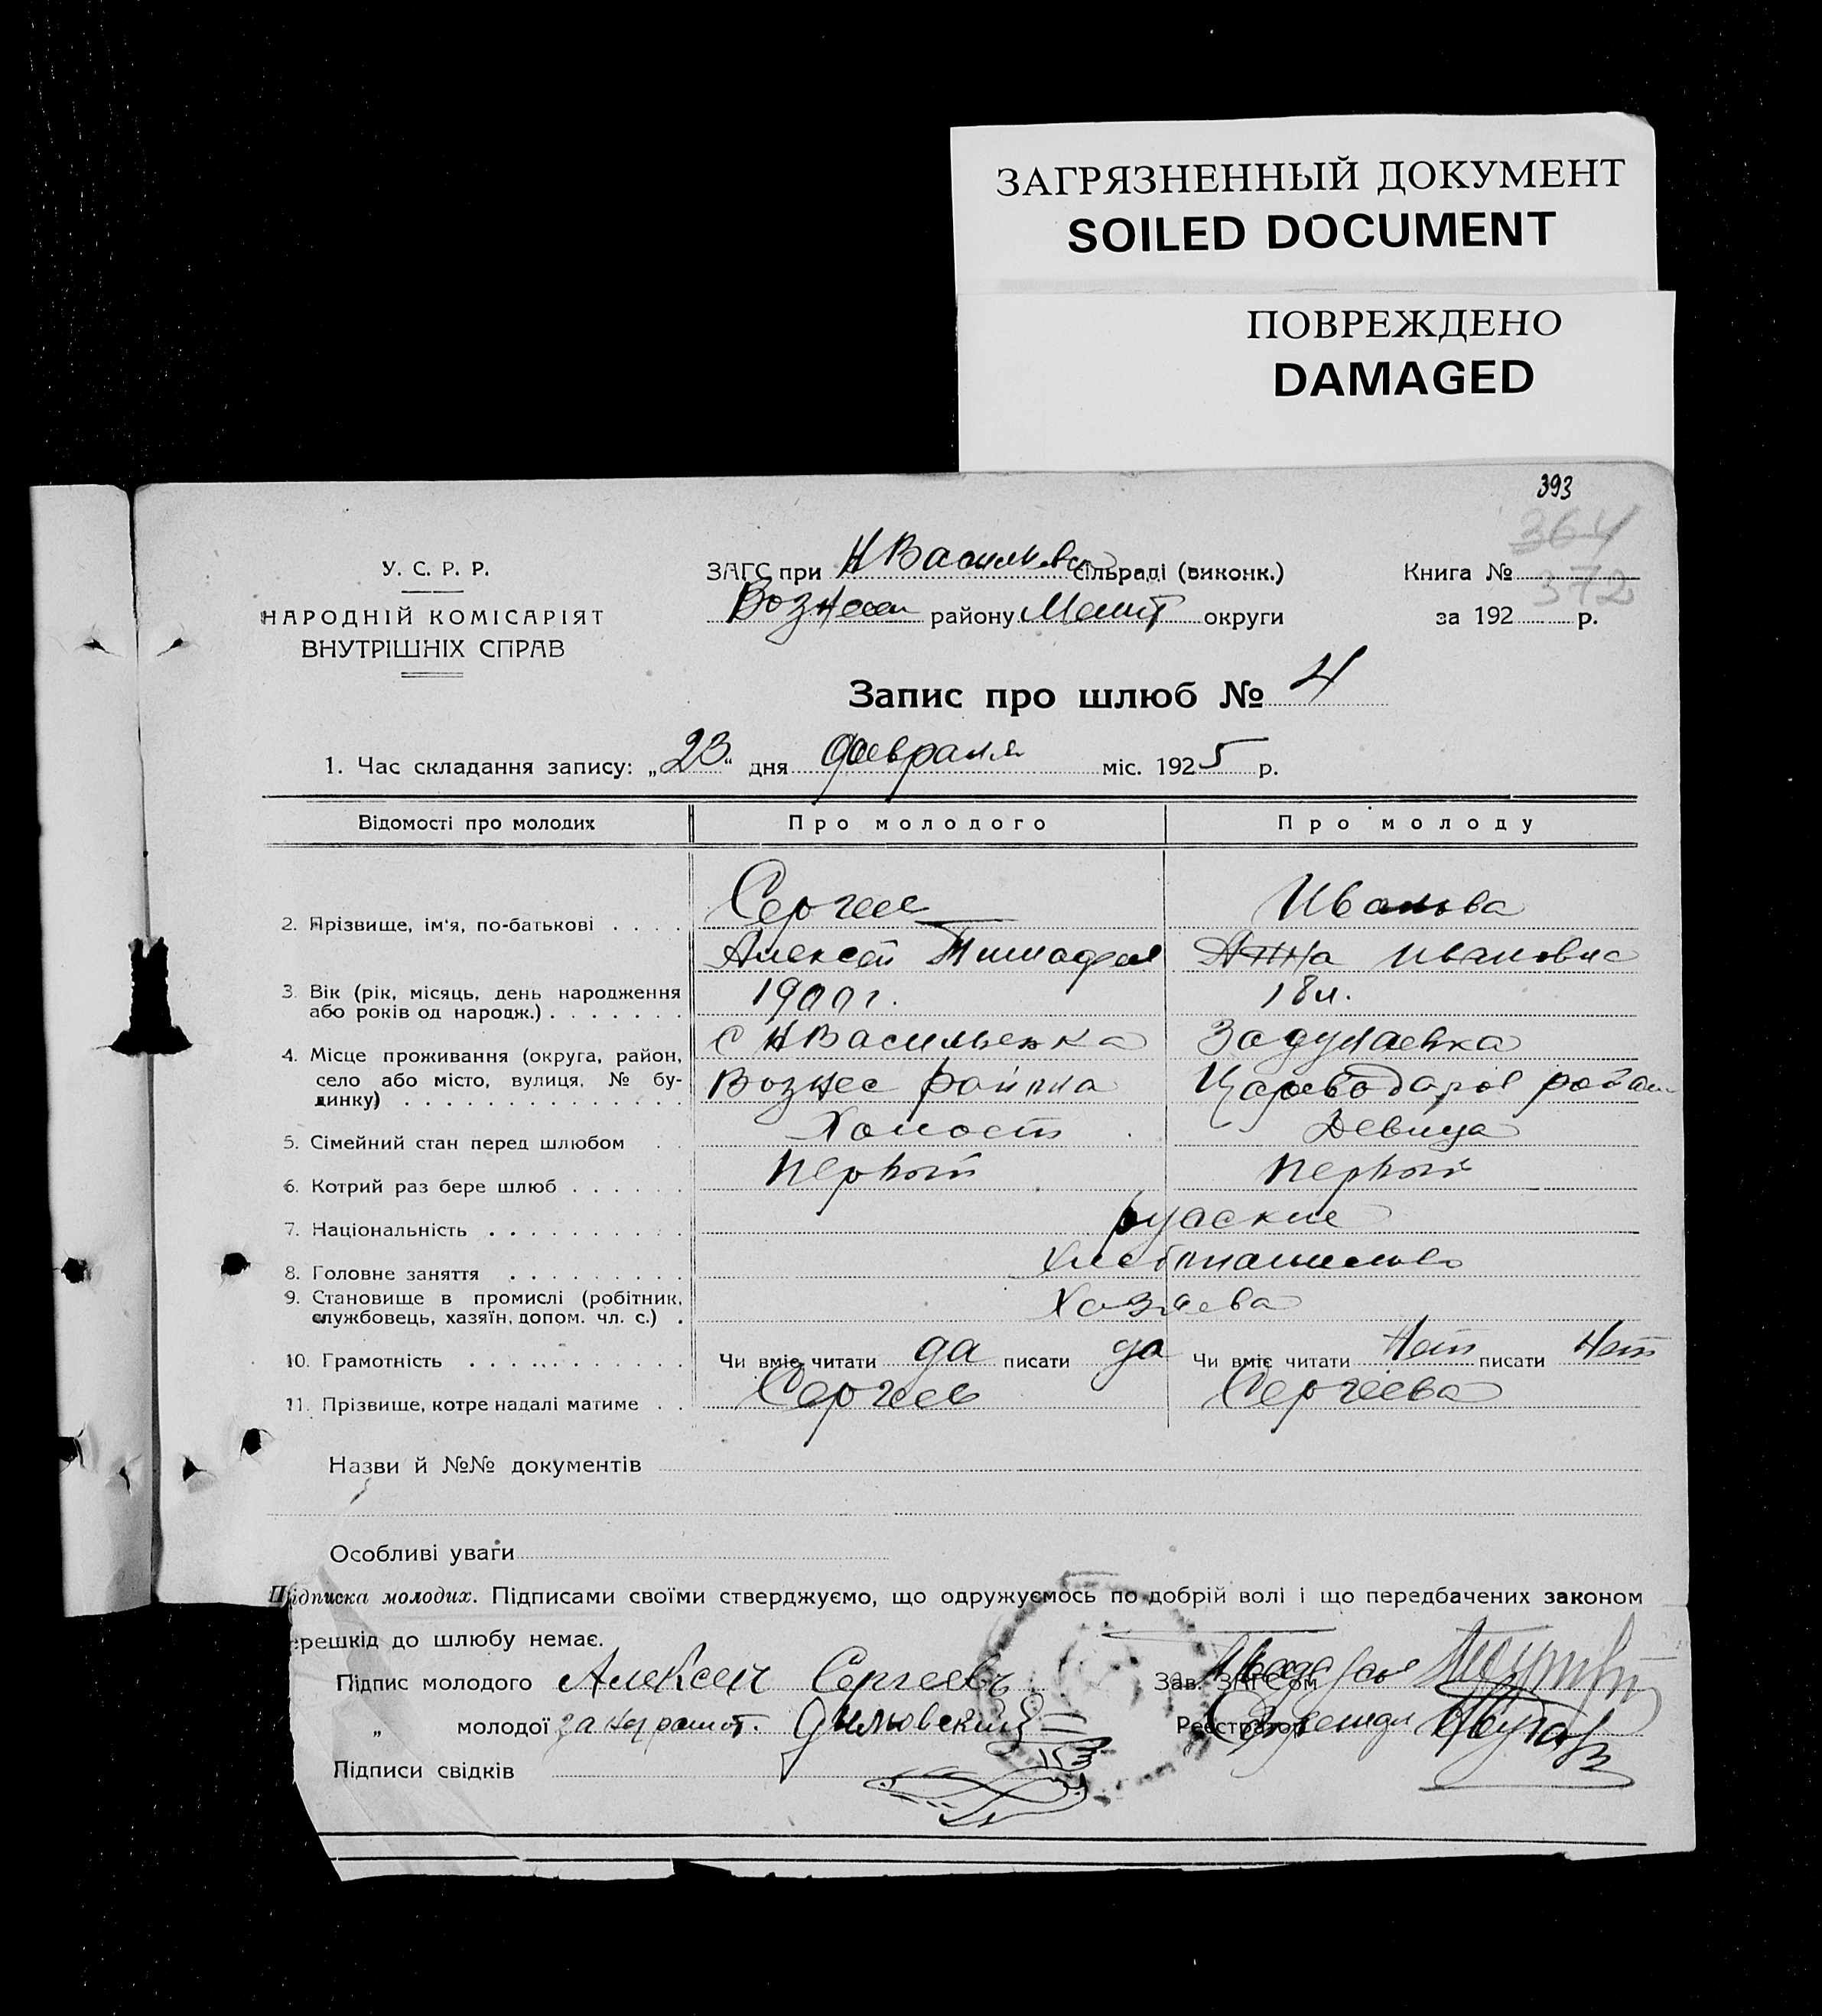 ЗАГРЯЗНЕННЫЙ ДОКУМЕНТ
SOILED DOCUMENT
ПОВРЕЖДЕНО
DAMAGED
393
364
372
У. С. Р. Р.
НАРОДНІЙ КОМІСАРІЯТ
ВНУТРІШНІХ СПРАВ
ЗАГС при Н Васильевск сільраді (виконк.)
Вознесен району Мелит округи
Книга №
за 192 р.
Запис про шлюб № 4
1. Час складання запису: „23" дня февраля міс. 1925 р.
Відомості про молодих Про молодого Про молоду
2. Прізвище, ім'я, по-батькові Сергеев Иванова
Алексей Тимофеев Анна Ивановна
3. Вік (рік, місяць, день народження або років од народж.) 1900 г. 18 л.
4. Місце проживання (округа, район, село або місто, вулиця, № будинку) с Н Васильевка Задунаевка
Вознес района Цареводаров район
5. Сімейний стан перед шлюбом Холост Девица
6. Котрий раз бере шлюб первый первый
7. Національність руские
8. Головне заняття хлебпашество
9. Становище в промислі (робітник, службовець, хазяїн, допом. чл. с.) Хозяева
10. Грамотність Чи вміє читати да писати да Чи вміє читати Нет писати Нет
11. Прізвище, котре надалі матиме Сергеев Сергеева
Назви й №№ документів
Особливі уваги
Підписка молодих. Підписами своїми стверджуємо, що одружуємось по добрій волі і що передбачених законом
ерешкід до шлюбу немає.
Підпис молодого Алексей Сергеевъ Зав. ЗАГС'ом
„ молодої за неграмот. Реєстратор
Підписи свідків